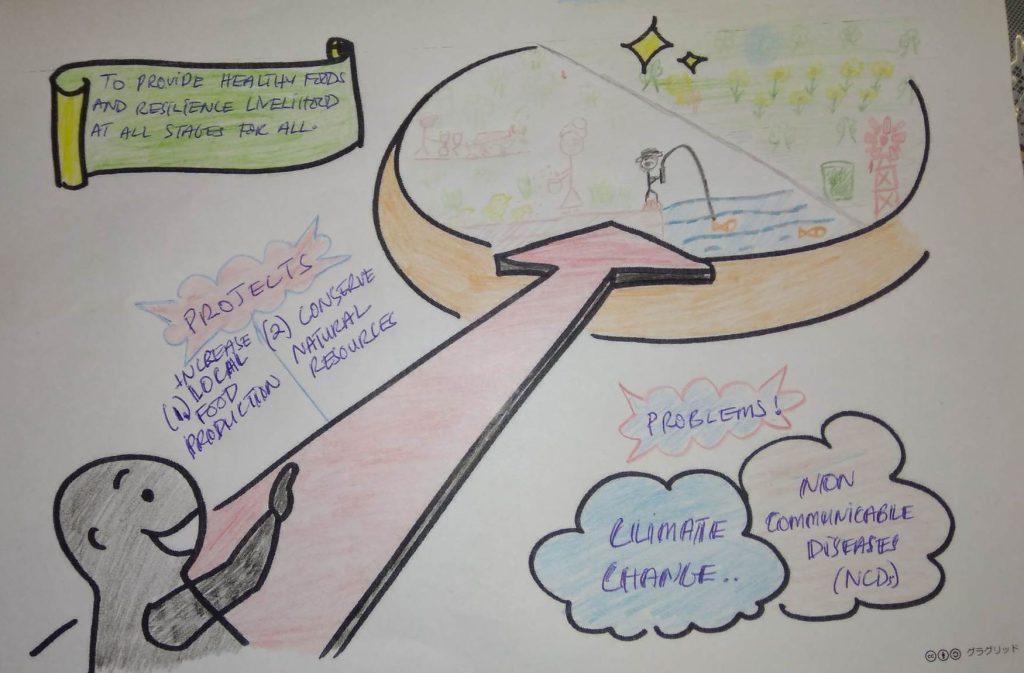 TO PROVIDE HEALTHY FOODS
AND RESILIENCE LIVELIHOOD
AT ALL STAGES FOR ALL.
PROJECTS
(1) INCREASE
LOCAL
FOOD
PRODUCTION
(2) CONSERVE
NATURAL
RESOURCES
PROBLEMS!
CLIMATE
CHANGE..
NON
COMMUNICABLE
DISEASES
(NCDs)
cc
グラグリッド